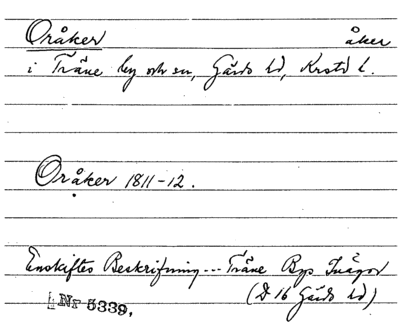 Oråker åker
i Träne by och sn, Gärds hd, Krstd l.
Oråker 1811-12.
Enskiftes Beskrifning --- Träne Bys Inägor
(D 16 Gärds hd)
Nr 5339,